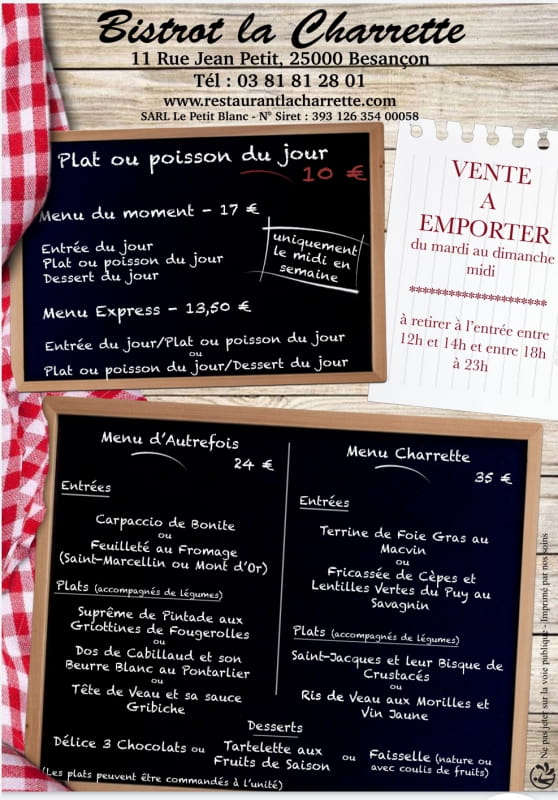 Bistrot la Charrette
11 Rue Jean Petit, 25000 Besançon
Tél : 03 81 81 28 01
www.restaurantlacharrette.com
SARL Le Petit Blanc - N° Siret : 393 126 354 00058
Plat ou poisson du jour
10 €
Menu du moment - 17 €
Entrée du jour
Plat ou poisson du jour
Dessert du jour
uniquement
le midi en
semaine
Menu Express - 13,50 €
Entrée du jour/Plat ou poisson du jour
ou
Plat ou poisson du jour/Dessert du jour
VENTE
A
EMPORTER
du mardi au dimanche
midi
*********************
à retirer à l'entrée entre
12h et 14h et entre 18h
à 23h
Menu d'Autrefois
24 €
Entrées
Carpaccio de Bonite
ou
Feuilleté au Fromage
(Saint-Marcellin ou Mont d'Or)
Plats (accompagnés de légumes)
Suprême de Pintade aux
Griottines de Fougerolles
ou
Dos de Cabillaud et son
Beurre Blanc au Pontarlier
ou
Tête de Veau et sa sauce
Gribiche
Menu Charrette
35 €
Entrées
Terrine de Foie Gras au
Macvin
ou
Fricassée de Cèpes et
Lentilles Vertes du Puy au
Savagnin
Plats (accompagnés de légumes)
Saint-Jacques et leur Bisque de
Crustacés
ou
Ris de Veau aux Morilles et
Vin Jaune
Desserts
Délice 3 Chocolats ou Tartelette aux
Fruits de Saison
ou Faisselle (nature ou
avec coulis de fruits)
(Les plats peuvent être commandés à l'unité)
Ne pas jeter sur la voie publique - Imprimé par nos soins